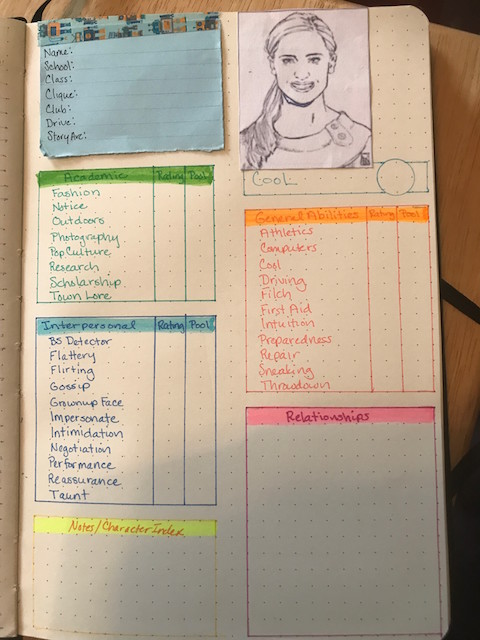 Name:
School:
Class:
Clique:
Club:
Drive:
Story Arc:
Cool
Academic Rating Pool
Fashion
Notice
Outdoors
Photography
Pop Culture
Research
Scholarship
Town Lore
General Abilities Rating Pool
Athletics
Computers
Cool
Driving
Filch
First Aid
Intuition
Preparedness
Repair
Sneaking
Throwdown
Interpersonal Rating Pool
BS Detector
Flattery
Flirting
Gossip
Grownup Face
Impersonate
Intimidation
Negotiation
Performance
Reassurance
Taunt
Relationships
Notes/Character Index